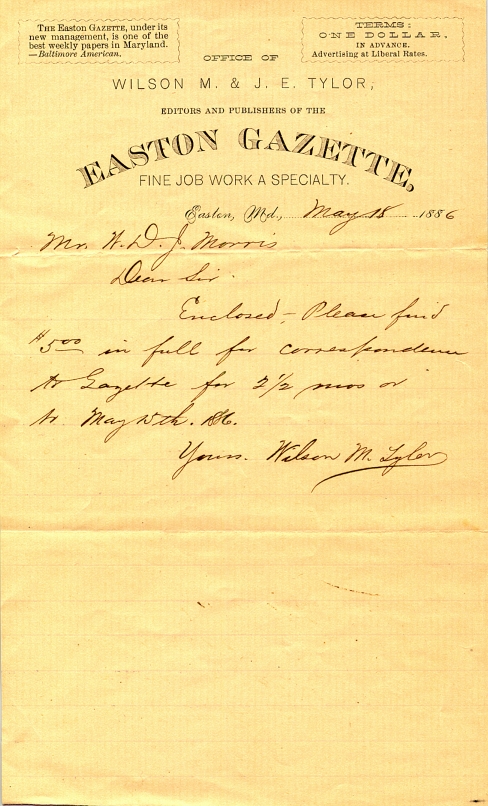 THE EASTON GAZETTE, under its
new management, is one of the
best weekly papers in Maryland.
—Baltimore American.
TERMS:
ONE DOLLAR,
IN ADVANCE,
Advertising at Liberal Rates.
OFFICE OF
WILSON M. & J. E. TYLOR,
EDITORS AND PUBLISHERS OF THE
EASTON GAZETTE,
FINE JOB WORK A SPECIALTY.
Easton, Md., May 18 1886
Mr. W. D. J. Morris
Dear Sir.
Enclosed - Please find
$5.00 in full for correspondence
to Gazette for 2 1/2 mos or
to May 15th. 1886.
Yours. Wilson M. Tylor